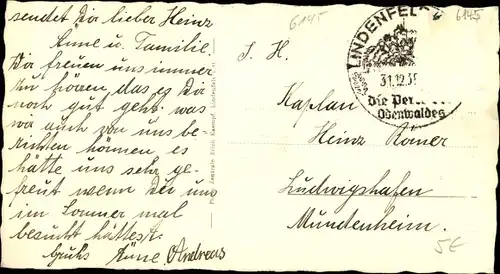 sendet Dir lieber Heinz
Änne u. Familie.
Wir freuen uns immer
zu hören, das es Dir
noch gut geht. was
wir auch von uns be-
richten können. es
hätte uns sehr ge-
freut wenn Du uns
im Sommer mal
besucht hättest.
Gruhs Änne. Andreas
6145
6145
LINDENFELS
31.12.3
die Per
Odenwaldes
S. H.
Kaplan
Heinz Römer
Ludwigshafen
Mundenheim.
5€